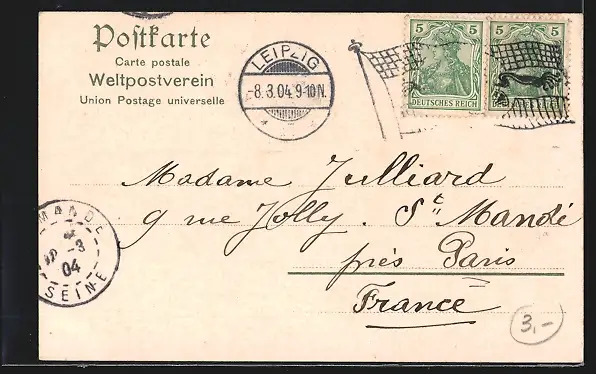 Postkarte
Carte postale
Weltpostverein
Union Postage universelle
LEIPZIG
-8.3.04.9-10N.
5 5
5 5
DEUTSCHES REICH
Madame Julliard
9 rue Jolly. St Mandé
près Paris
France
MANDE
-3
04
SEINE
3,-